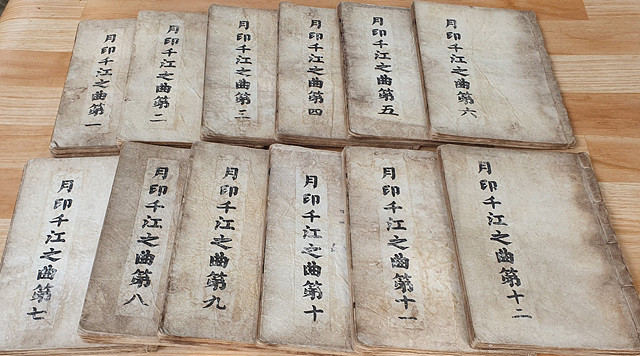 月印千江之曲第一
月印千江之曲第二
月印千江之曲第三
月印千江之曲第四
月印千江之曲第五
月印千江之曲第六
月印千江之曲第七
月印千江之曲第八
月印千江之曲第九
月印千江之曲第十
月印千江之曲第十一
月印千江之曲第十二